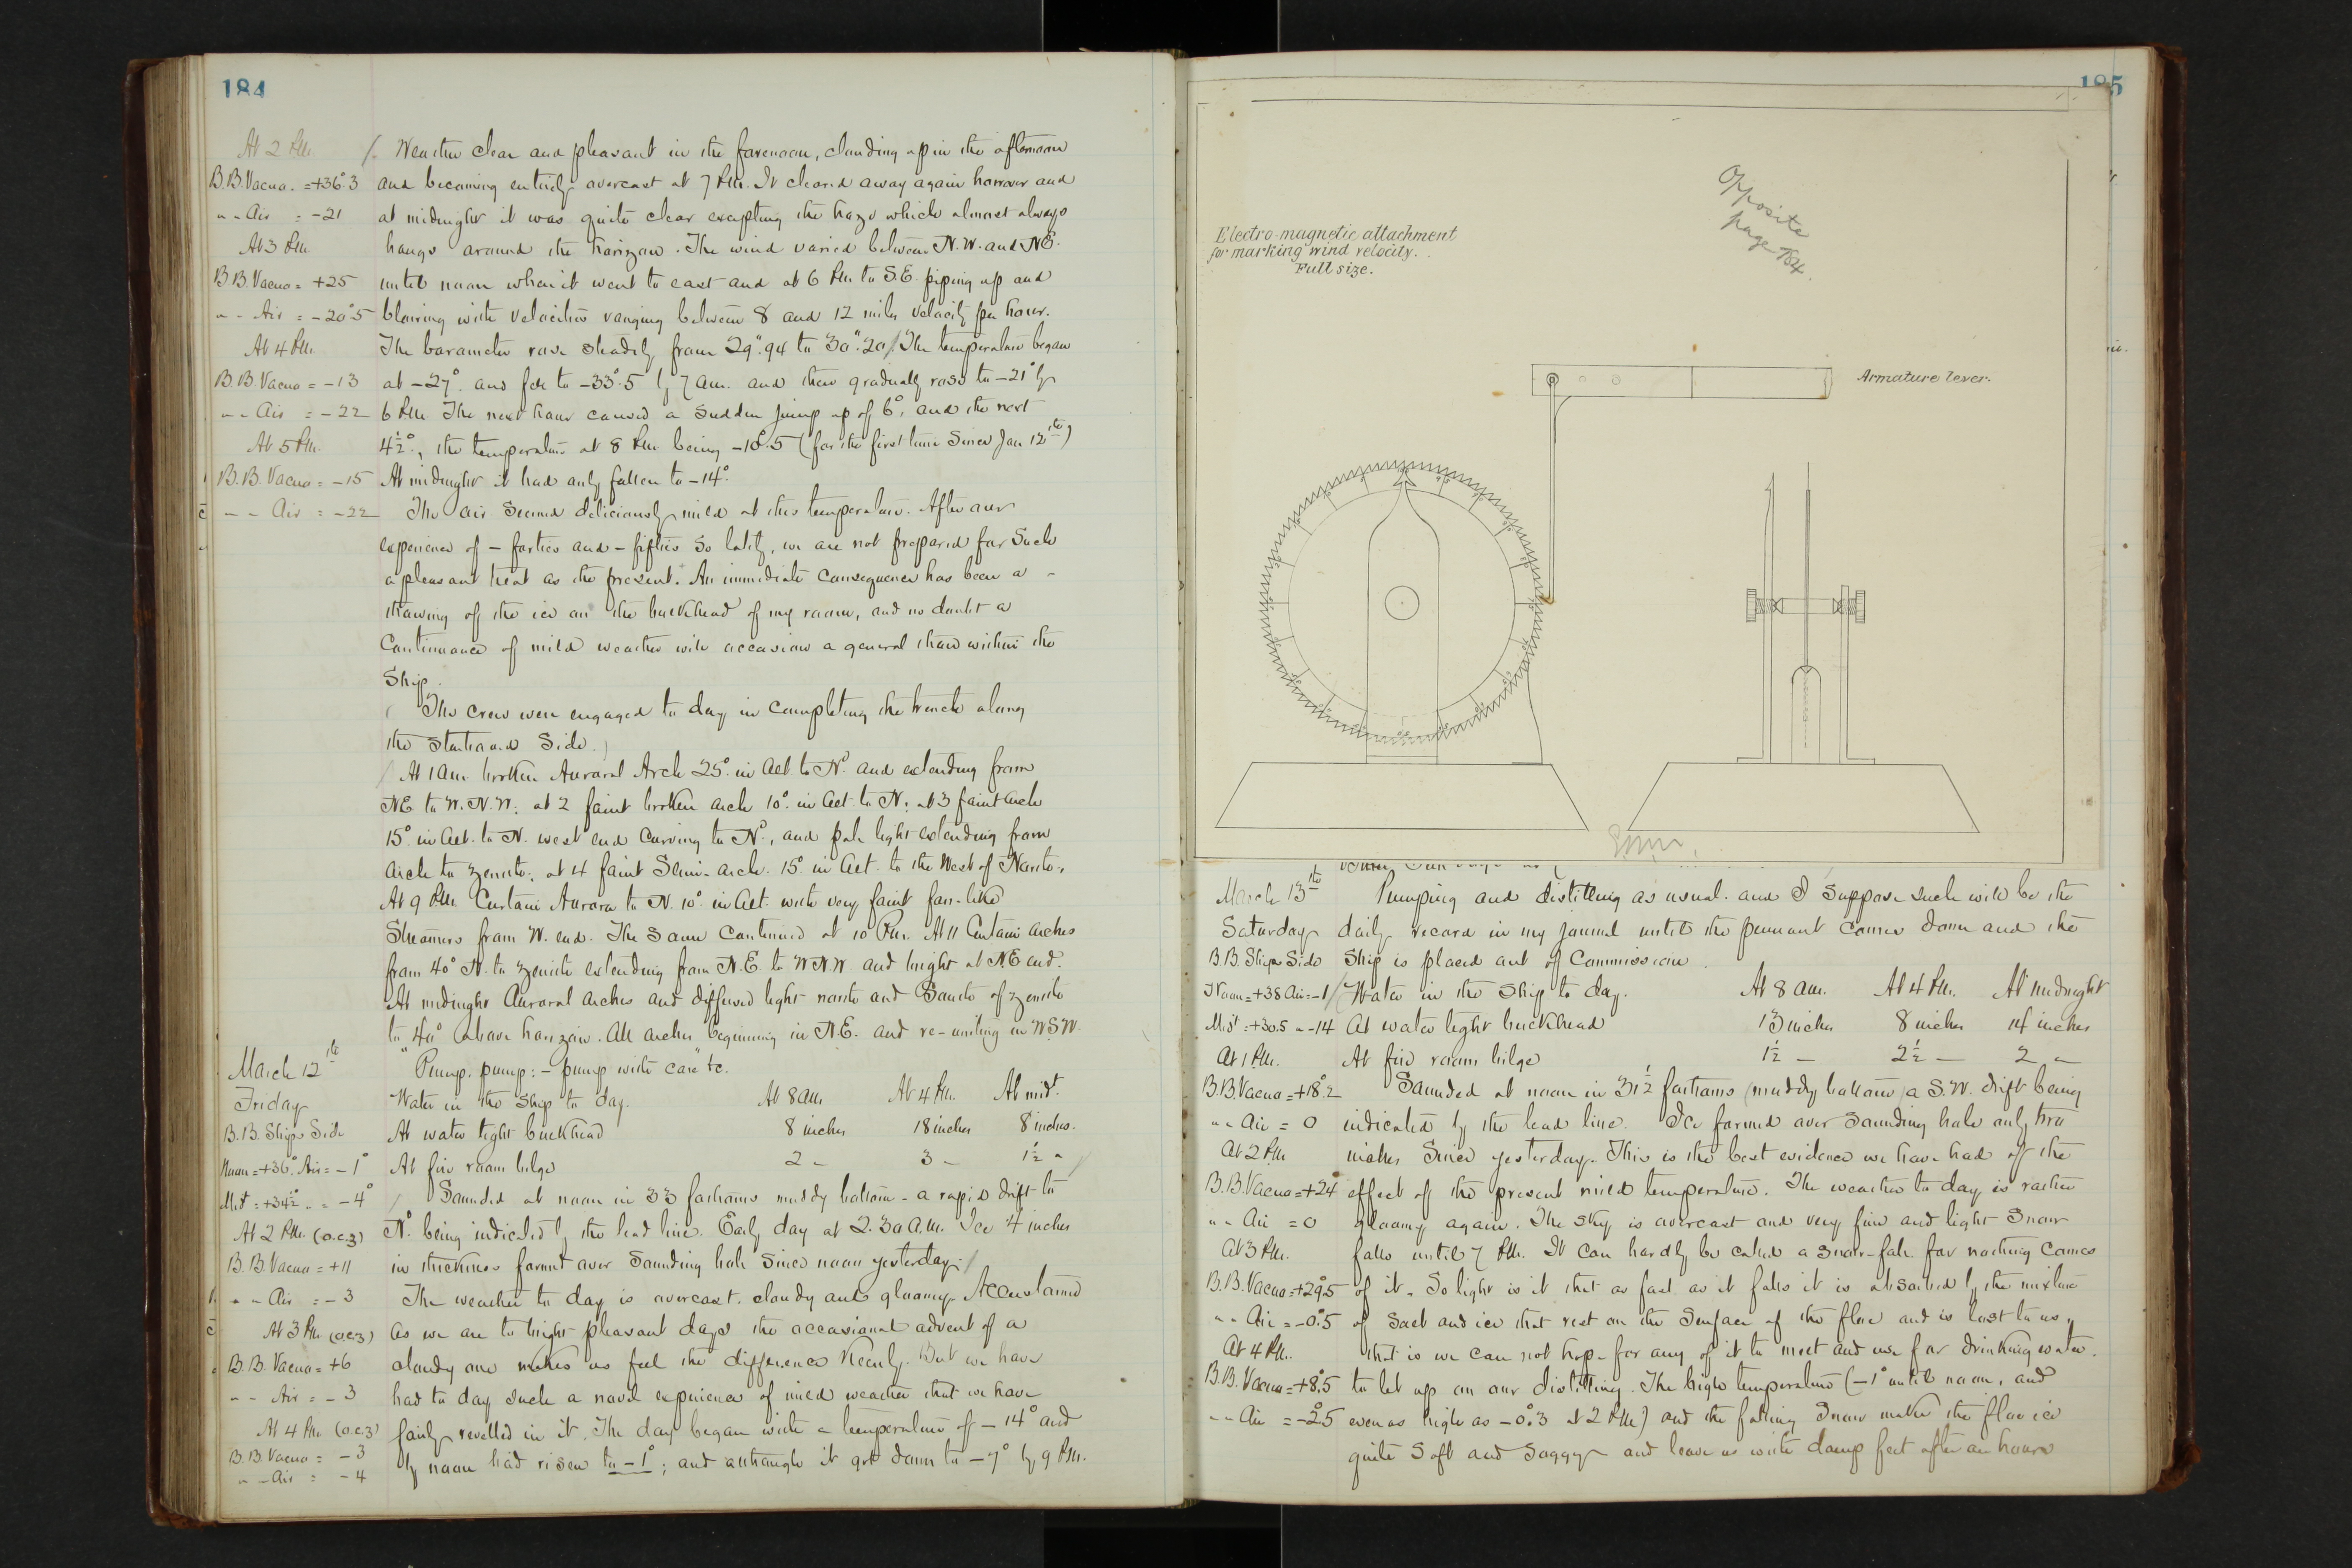 184
At 2 P.M.
B.B. Vacuo. = +36°.3
" - Air = -21
At 3 P.M.
B.B. Vacuo = +25
" - Air = -20°.5
At 4 P.M.
B.B. Vacuo = -13
" - Air = -22
At 5 P.M.
B.B. Vacuo = -15
" - Air = -22
Weather clear and pleasant in the forenoon, clouding up in the afternoon
and becoming entirely overcast at 7 P.M. It cleared away again however and
at midnight it was quite clear excepting the haze which almost always
hangs around the horizon. The wind varied between N.W. and N.E.
until noon when it went to east and at 6 P.M. to S.E. piping up and
blowing with velocities ranging between 8 and 12 miles velocity per hour.
The barometer rose steadily from 29".94 to 30".20. The temperature began
at -27°. and fell to -33°.5 by 7 a.m. and then gradually rose to -21° by
6 P.M. The next hour caused a sudden jump up of 6°, and the next
4½°, the temperature at 8 P.M. being -10°.5 (for the first time since Jan 12th)
At midnight it had only fallen to -14°.
The air seemed deliciously mild at this temperature. After our
experience of - forties and - fifties so lately, we are not prepared for such
a pleasant treat as the present. An immediate consequence has been a -
thawing of the ice on the bulkhead of my room, and no doubt a
continuance of mild weather will occasion a general thaw within the
Ship.
The crew were engaged to day in completing the trench along
the starboard side.
At 1 a.m. broken Auroral Arch 25° in Alt. to N°. and extending from
N.E. to W.N.W; at 2 faint broken arch 10° in Alt. to N; at 3 faint arch
15° in Alt. to N. west end curving to N°., and pale light extending from
arch to zenith; at 4 faint Semi-arch 15° in Alt. to the West of North.
At 9 P.M. Curtain Aurora to N. 10° in Alt. with very faint fan-like
Streamers from W. end. The same continued at 10 P.M. At 11 Curtain arches
from 40° N. to zenith extending from N.E. to W.N.W. and bright at N.E. end.
At midnight Auroral arches and diffused light north and South of zenith
to 40° above horizon. All arches beginning in N.E. and re-uniting in W.S.W.
March 12th
Friday
B.B. Ships Side
Noon = +36° Air = -1°
Mid't = +34½° " = -4°
At 2 P.M. (o.c.z)
B.B. Vacuo = +11
" - Air = -3
At 3 P.M. (o.c.z)
B.B. Vacuo = +6
" - Air = -3
At 4 P.M. (o.c.z)
B.B. Vacuo = -3
" - Air = -4
"Pump. pump: - pump with care" &c.
Water in the Ship to day. At 8 a.m. At 4 P.M. At mid't.
At water tight bulkhead 8 inches 18 inches 8 inches.
At fire room bilge 2 - 3 - 1½ "
Sounded at noon in 33 fathoms muddy bottom - a rapid drift to
N°. being indicated by the lead line. Early day at 2.30 a.m. Ice 4 inches
in thickness formed over Sounding hole since noon yesterday.
The weather to day is overcast. cloudy and gloomy. Accustomed
as we are to bright pleasant days the occasional advent of a
cloudy one makes us feel the difference keenly. But we have
had to day such a novel experience of mild weather that we have
fairly revelled in it. The day began with a temperature of -14° and
by noon had risen to -1°; and although it got down to -7° by 9 P.M.
185
Opposite
page 184.
Electro-magnetic attachment
for marking wind velocity.
Full size.
Armature lever.
March 13th
Saturday
B.B. Ships Side
Noon = +38 Air = -1
Mid't = +30.5 " -14
At 1 P.M.
B.B. Vacuo = +18°.2
" - Air = 0
At 2 P.M.
B.B. Vacuo = +24°
" - Air = 0
At 3 P.M.
B.B. Vacuo = +29°.5
" - Air = -0°.5
At 4 P.M.
B.B. Vacuo = +8°.5
" - Air = -2°.5
Pumping and distilling as usual. and I suppose such will be the
daily record in my journal until the pennant comes down and the
Ship is placed out of Commission.
Water in the Ship to day. At 8 a.m. At 4 P.M. At midnight
At water tight bulkhead 13 inches 8 inches 14 inches
At fire room bilge 1½ - 2½ - 2 "
Sounded at noon in 31½ fathoms (muddy bottom) a S.W. drift being
indicated by the lead line. Ice formed over Sounding hole only two
inches since yesterday. This is the best evidence we have had of the
effect of the present mild temperature. The weather to day is rather
gloomy again. The sky is overcast and very fine and light snow
falls until 7 P.M. It can hardly be called a snow-fall for nothing comes
of it. So light is it that as fast as it falls it is absorbed by the mixture
of salt and ice that rest on the surface of the floe and is lost to us,
that is we can not hope for any of it to melt and use for drinking water.
to let up on our distilling. The high temperature (-1° until noon, and
even as high as -0°.3 at 2 P.M.) and the falling snow makes the floe ice
quite soft and soggy and leave us with damp feet after an hours